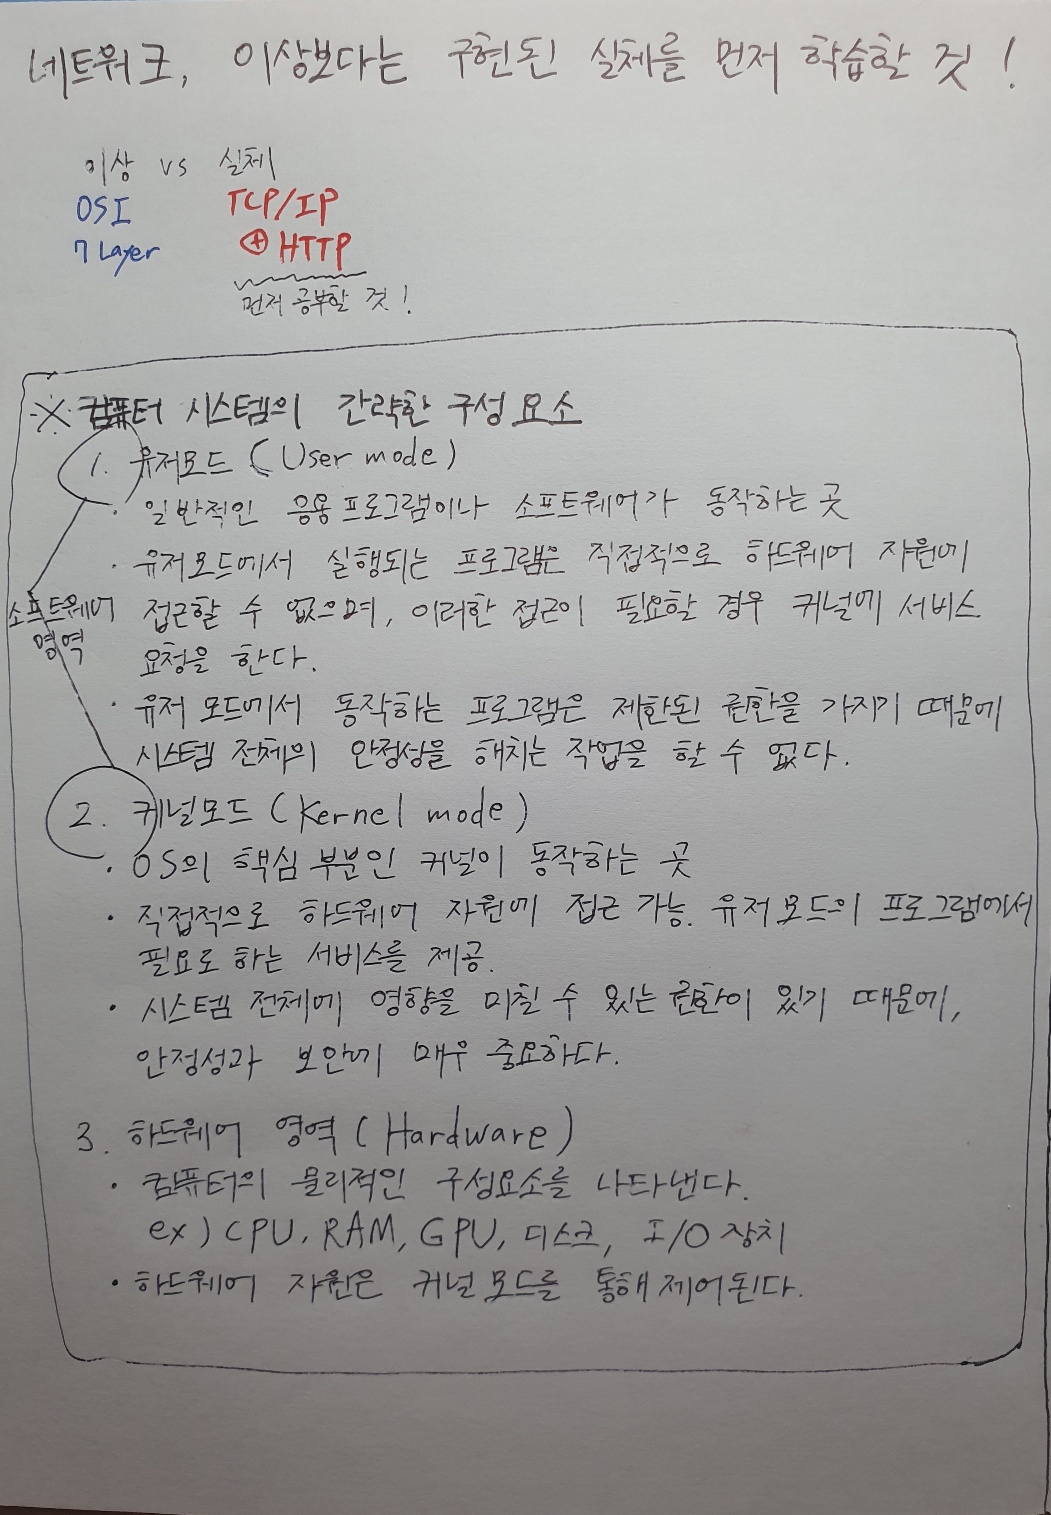 네트워크, 이상보다는 구현된 실체를 먼저 학습할 것!
이상 vs 실체
OSI TCP/IP
7 Layer ⊕ HTTP
먼저 공부할 것!
※ 컴퓨터 시스템의 간략한 구성요소
1. 유저모드 (User mode)
· 일반적인 응용프로그램이나 소프트웨어가 동작하는 곳
· 유저모드에서 실행되는 프로그램은 직접적으로 하드웨어 자원에
접근할 수 없으며, 이러한 접근이 필요할 경우 커널에 서비스
요청을 한다.
소프트웨어
영역
· 유저 모드에서 동작하는 프로그램은 제한된 권한을 가지기 때문에
시스템 전체의 안정성을 해치는 작업을 할 수 없다.
2. 커널모드 (Kernel mode)
· OS의 핵심 부분인 커널이 동작하는 곳
· 직접적으로 하드웨어 자원에 접근 가능. 유저모드의 프로그램에서
필요로 하는 서비스를 제공.
· 시스템 전체에 영향을 미칠 수 있는 권한이 있기 때문에,
안정성과 보안에 매우 중요하다.
3. 하드웨어 영역 (Hardware)
· 컴퓨터의 물리적인 구성요소를 나타낸다.
ex) CPU, RAM, GPU, 디스크, I/O 장치
· 하드웨어 자원은 커널 모드를 통해 제어된다.